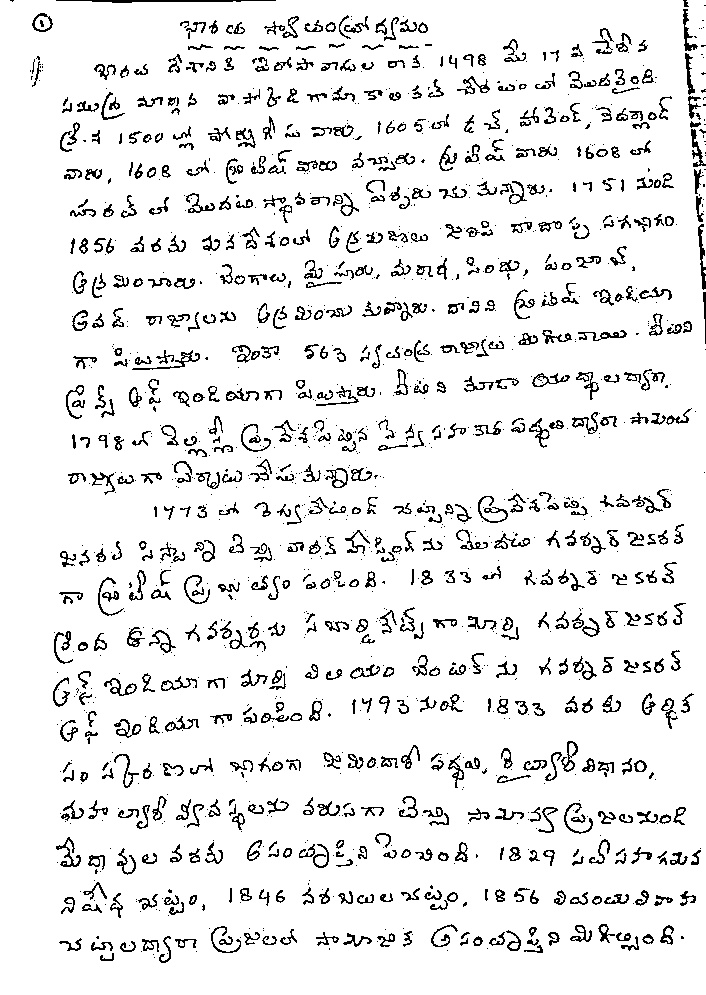 ①
భారత స్వాతంత్రోద్యమం
భారత దేశానికి ఐరోపావాసుల రాక 1498 మే 17 న చేరిన
సముద్ర మార్గాన వాస్కోడిగామా కాలికట్ చేరటంలో మొదలైంది
క్రీ.శ 1500ల్లో పోర్చుగీసు వారు, 1605లో డచ్, హాలెండ్, నెదర్లాండ్
వారు, 1608 లో బ్రిటిష్ వారు వచ్చారు. బ్రిటిష్ వారు 1608 లో
సూరత్ లో మొదట స్థావరాన్ని ఏర్పరుచుకున్నారు. 1751 నుండి
1856 వరకు మన దేశంలో ఆక్రమణలు జరిపి దాదాపు సగభాగం
ఆక్రమించారు. బెంగాలు, మైసూరు, మరాఠ, సింధు, పంజాబ్,
అవధ్ రాజ్యాలను ఆక్రమించుకున్నారు. దానిని బ్రిటిష్ ఇండియా
గా పిలుస్తారు. ఇంకా 563 స్వతంత్ర రాజ్యాలు మిగిలినాయి. వీటిని
ప్రిన్స్ ఆఫ్ ఇండియాగా పిలుస్తారు. వీటిని కూడా యుద్ధాలద్వారా,
1798లో వెల్లస్లీ ప్రవేశపెట్టిన సైన్య సహకార పద్ధతి ద్వారా సామంత
రాజ్యాలుగా ఏర్పాటు చేసుకున్నారు.
1773 లో రెగ్యులేటింగ్ చట్టాన్ని ప్రవేశపెట్టి గవర్నర్
జనరల్ సిస్టాన్ని తెచ్చి వారన్ హేస్టింగ్ ను మొదటి గవర్నర్ జనరల్
గా బ్రిటిష్ ప్రభుత్వం పంపింది. 1833 లో గవర్నర్ జనరల్
క్రింద ఉన్న గవర్నర్లను సబార్డినేట్స్ గా మార్చి గవర్నర్ జనరల్
ఆఫ్ ఇండియాగా మార్చి విలియం బెంటిక్ ను గవర్నర్ జనరల్
ఆఫ్ ఇండియా గా పంపింది. 1793 నుండి 1833 వరకు ఆర్థిక
సంస్కరణలలో భాగంగా జమిందారీ పద్ధతి, రైత్వారీ విధానం,
మహల్వారీ వ్యవస్థలను వరుసగా తెచ్చి సామాన్య ప్రజలనుండి
మేధావుల వరకు అసంతృప్తిని పెంచింది. 1829 సతీసహగమన
నిషేధ చట్టం, 1846 నరబలుల చట్టం, 1856 వితంతు వివాహ
చట్టాలద్వారా ప్రజలలో సామాజిక అసంతృప్తిని మిగిల్చింది.